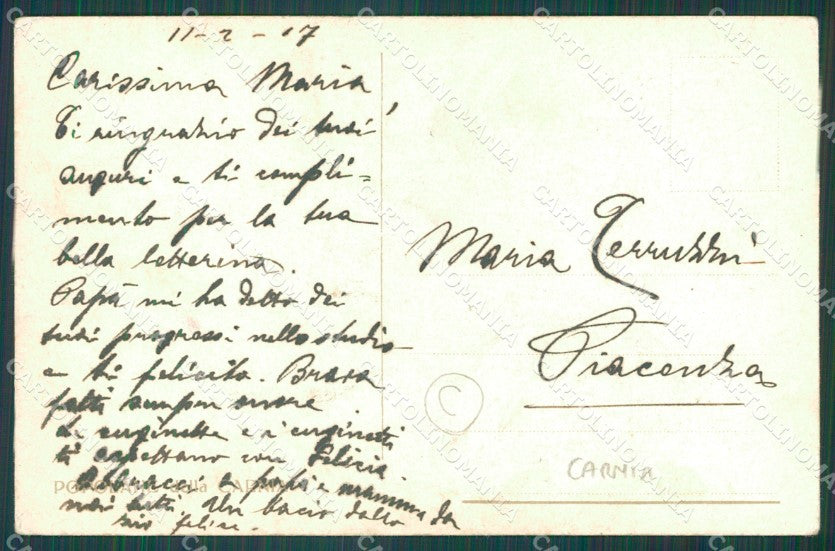 11-2-17
Carissima Maria,
Ti ringrazio dei tuoi
auguri e ti compli=
mento per la tua
bella letterina.
Papà mi ha detto dei
tuoi progressi nello studio
e ti felicito. Brava
fatti sempre onore
Le cuginette e i cuginetti
ti aspettano con Felicia.
Abbracci a papà e mamma da
noi tutti Un bacio dallo
zio Felice.
Maria Terruzzi
Piacenza
CARNIA
della
C
CARTOLINOMANIA